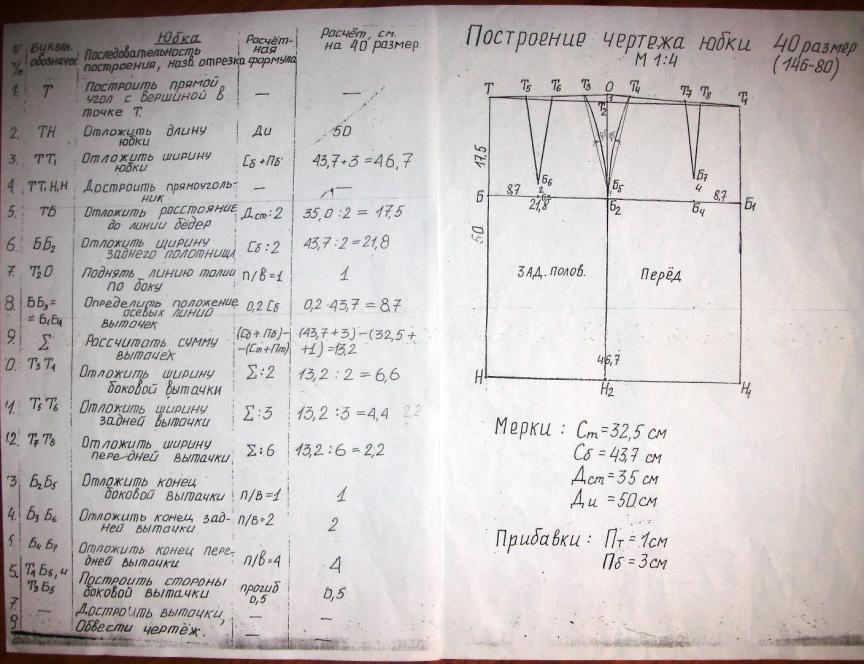 Юбка
N п/п
Буквен. обозначен.
Последовательность построения, назв. отрезка
Расчёт-ная формула
Расчёт, см. на 40 размер
1. Т Построить прямой угол с вершиной в точке Т. — —
2. ТН Отложить длину юбки Ди 50
3. ТТ₁ Отложить ширину юбки Сб+Пб 43,7+3=46,7
4 ТТ₁Н₁Н Достроить прямоуголь-ник — —
5. ТБ Отложить расстояние до линии бёдер Дст:2 35,0:2= 17,5
6. ББ₂ Отложить ширину заднего полотнища Сб:2 43,7:2=21,8
7. Т₂О Поднять линию талии по боку п/в=1 1
8. ББ₃= =Б₁Б₄ Определить положение осевых линий вытачек 0,2 Сб 0,2·43,7=8,7
9. Σ Рассчитать сумму вытачек (Сб+Пб)- -(Ст+Пт) (43,7+3)-(32,5+ +1)=13,2
0. Т₃Т₄ Отложить ширину боковой вытачки Σ:2 13,2:2=6,6
1. Т₅Т₆ Отложить ширину задней вытачки Σ:3 13,2:3=4,4 2,2
12. Т₇Т₈ Отложить ширину передней вытачки Σ:6 13,2:6=2,2
3. Б₂Б₅ Отложить конец боковой вытачки п/в=1 1
4. Б₃Б₆ Отложить конец зад-ней вытачки п/в=2 2
5. Б₄Б₇ Отложить конец пере-дней вытачки п/в=4 4
6. Т₄Б₅, и Т₃Б₅ Построить стороны боковой вытачки прогиб 0,5 0,5
7. — Достроить вытачки, — —
Обвести чертёж. — —
Построение чертежа юбки 40 размер
М 1:4 (146-80)
Т Т₅ Т₆ Т₃ О Т₄ Т₇ Т₈ Т₁
Т₂
17,5
Б₆ Б₅ Б₇
2 4
Б 8,7 Б₃ Б₂ Б₄ 8,7 Б₁
21,8
50
ЗАД. полов. Перёд
46,7
Н Н₂ Н₁
Мерки: Ст=32,5 см
Сб=43,7 см
Дст=35 см
Ди=50см
Прибавки: Пт=1см
Пб=3см